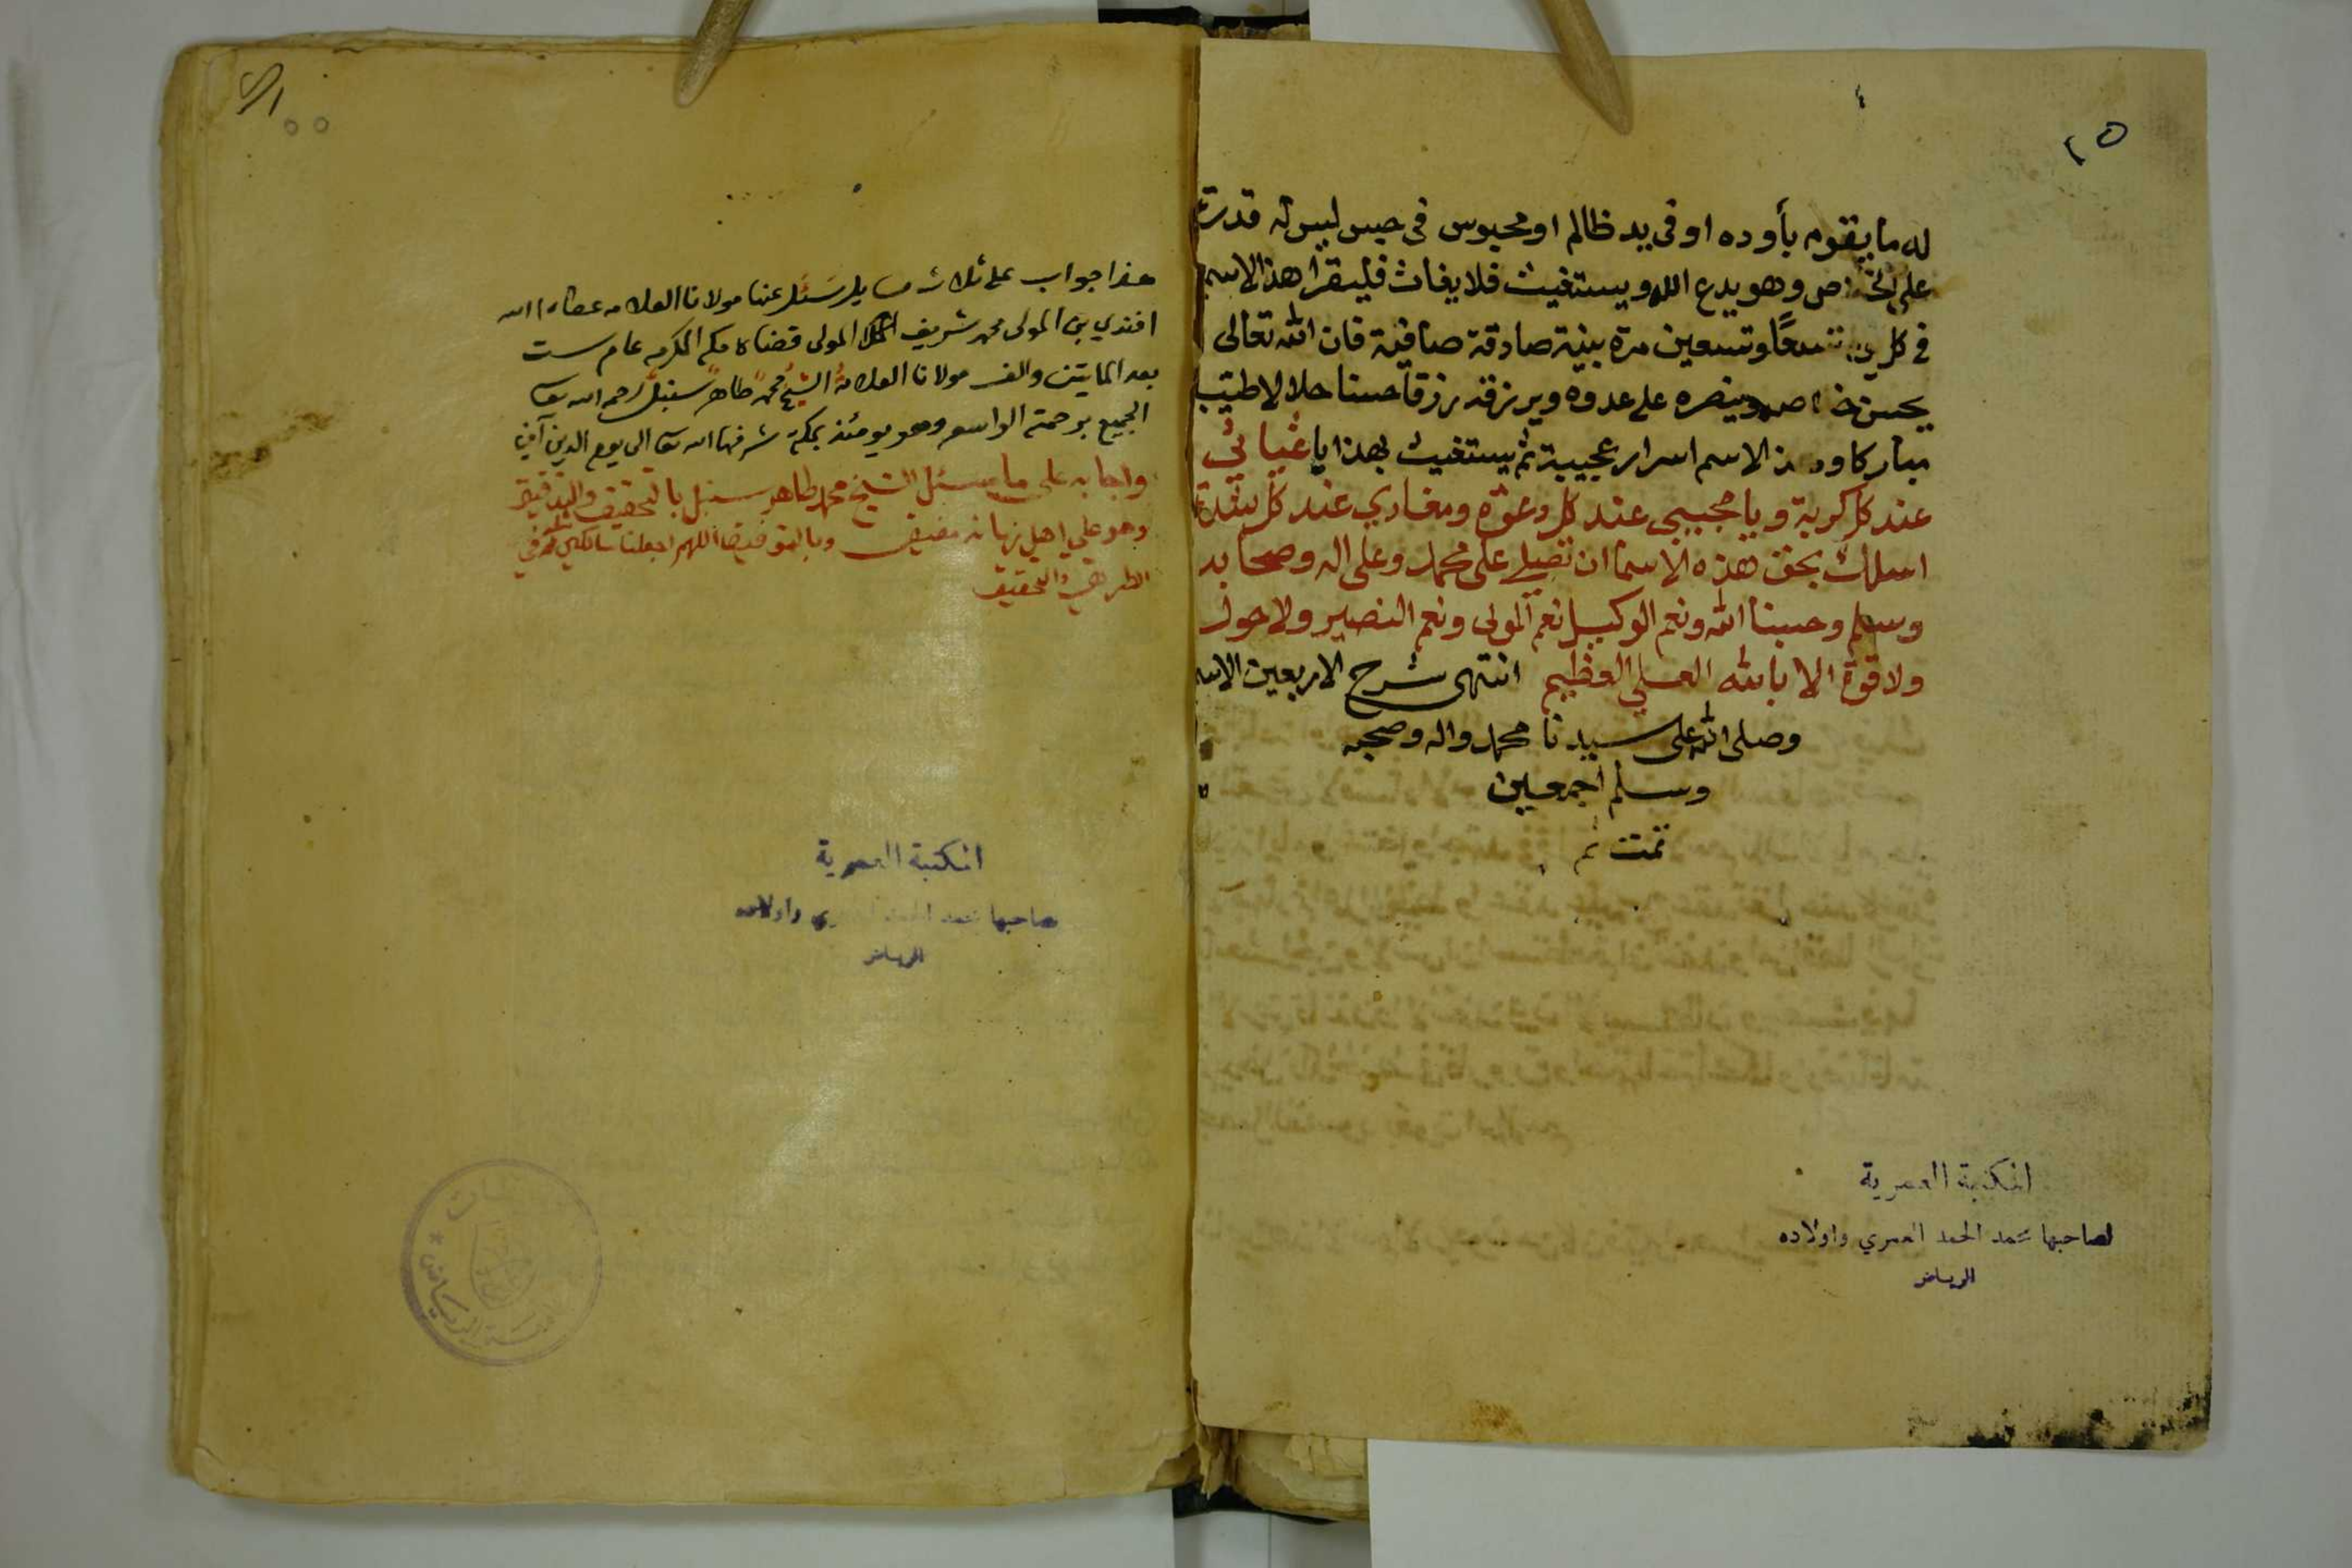 ٢٥
له ما يقوم بأوده او فى يد ظالم او محبوس فى حبس ليس له قدرت
على وهو يدع الله ويستغيث فلا يغاث فليقرا هذا الاسم
فى كل تسعًا وتسعين مرة بنية صادقة صافية فان الله تعالى
يحسن وينصره على عدوه ويرزقه رزقا حسنا حلالا طيبا
مباركا الاسم اسرار عجيبة ثم يستغيث بهذا يا غياثي
عند كل كربة ويا مجيبي عند كل دعوة ومعاذي عند كل شدة
اسئلك بحق هذه الاسما ان تصلي على محمد وعلى اله وصحابه
وسلم وحسبنا الله ونعم الوكيل نعم المولى ونعم النصير ولا حول
ولا قوة الا بالله العلي العظيم انتهى شرح الاربعين الاسم
وصلى الله على سيدنا محمد واله وصحبه
وسلم اجمعين
تمت تم
المكتبة العمرية
لصاحبها سعد الحمد العمري واولاده
الرياض
هذا جواب على ثلاث مسايل سئل عنها مولانا العلامه عطاء الله
افندي بن المولى محمد شريف المولى قضاة مكه المكرمه عام ست
بعد المايتين والف مولانا العلامة الشيخ محمد طاهر سنبل رحم الله تعا
الجميع برحمته الواسعه وهو يومئذ بمكة شرفها الله تعا الى يوم الدين آمين
واجابه على ما سئل الشيخ محمد طاهر سنبل بالتحقيق والتدقيق
وهو على اهل زمانه وبالتوفيق اللهم اجعلنا سالكين
والتحقيق
المكتبة العمرية
لصاحبها سعد الحمد العمري واولاده
الرياض